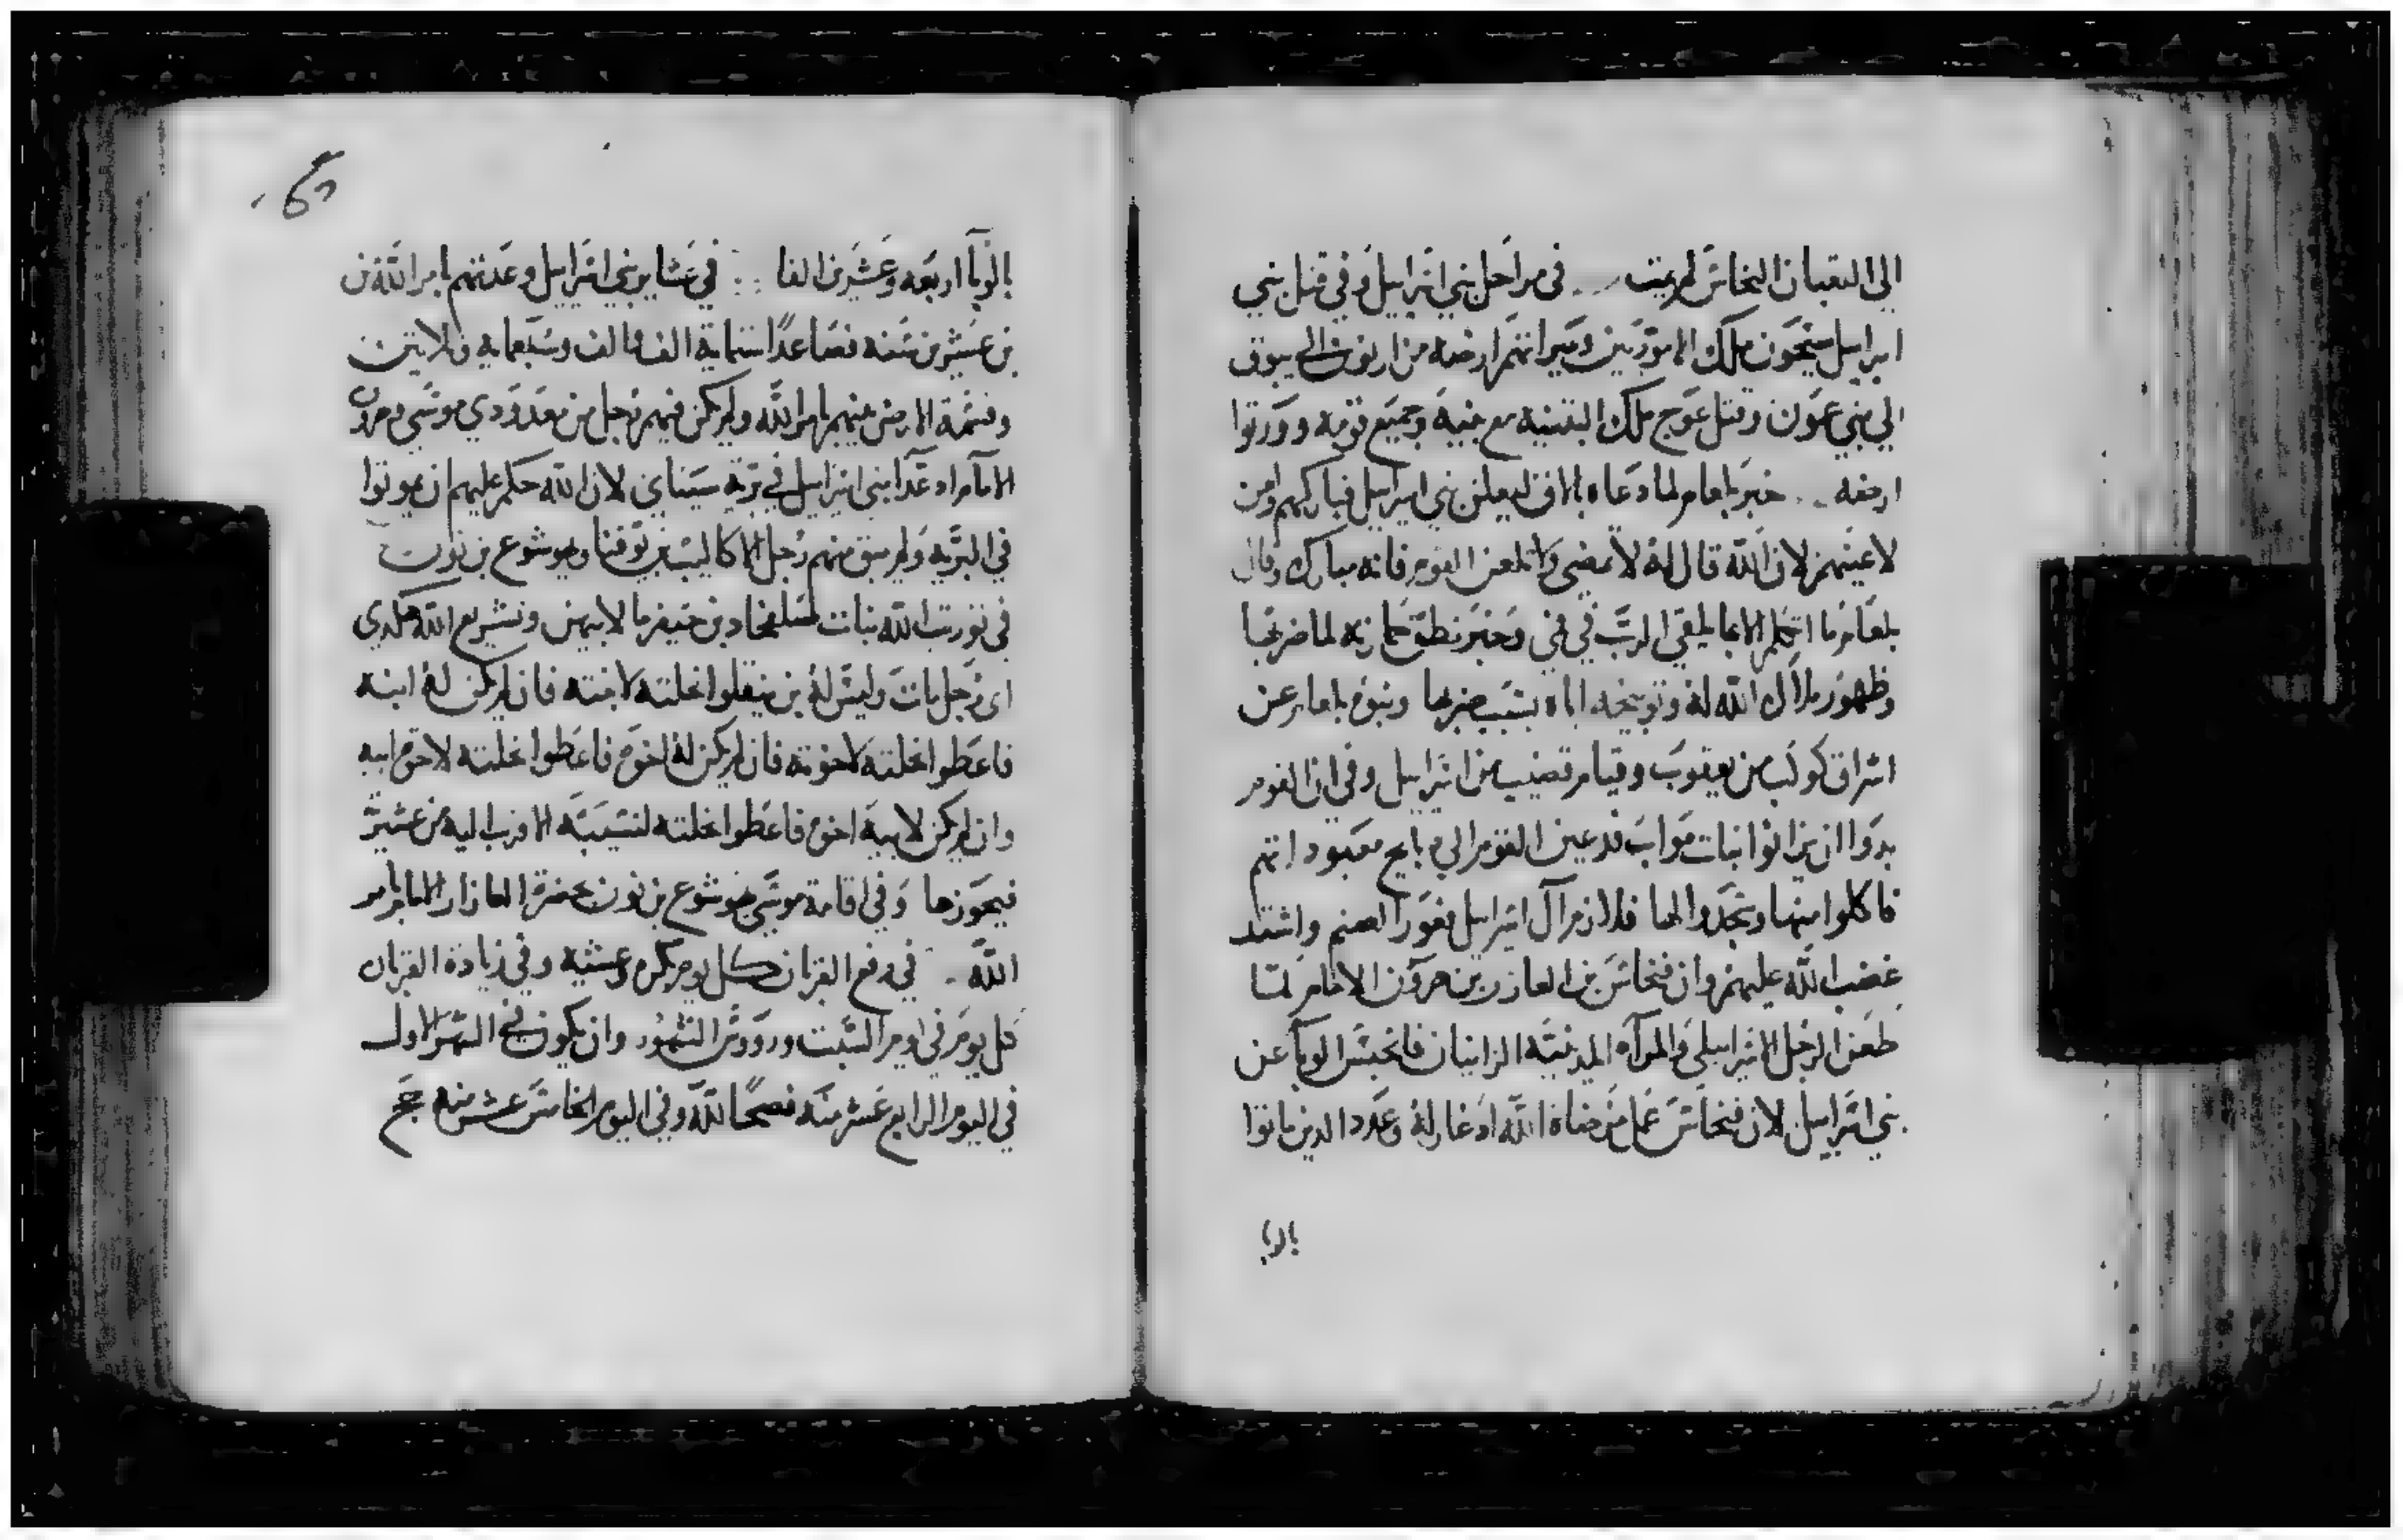 الي التعبان النحاس لم يمت في مراحل بني اسراييل وفي قتل بني
اسراييل سيحون ملك الاموريين وميراثهم ارضه من ارنون الي يبوق
الي بني عمون وقتل عوج ملك البثنيه مع بنيه وجميع قومه وورثوا
ارضه خبر بلعام لما دعاه بالاق ليعلن بني اسراييل فباركهم وامن
لاعنيهم لان الله قال له لا تمضي ولا تلعن القوم فانه مبارك وقال
بلعام ما اتكلم الا بما يلقي الرب في فمي وخبر نطق حمارته لما ضربها
وظهور ملاك الله له وتوبيخه اياه بسبب ضربها ونبوة بلعام عن
اشراق كوكب من يعقوب وقيام قضيب من اسراييل وفي ان القوم
بدوا ان يزانوا بنات مواب فدعين القوم الي دبايح معبوداتهم
فاكلوا منها وسجدوا لها فلازم ال اسراييل فغور الصنم واشتد
غضب الله عليهم وان فنحاس بن العازر بن هرون الامام لما
طعن الرجل الاسراييلي والمراه المدينيه الزانيان فانحبس الوبا عن
بني اسراييل لان فنحاس عمل مرضاة الله اذ غار له وعدد الدين ماتوا
بالوبا
بالوبا اربعه وعشرين الفا في عشاير بني اسراييل وعدتهم بامر الله من
بن عشرين سنه فصاعدا ستماية الف والف وسبعمايه وثلاثين
وقسمة الارض بينهم بامر الله ولم يكن فيهم رجل من معدودي موسي وهرون
الامام اد عدا بني اسراييل في برية سيناي لان الله حكم عليهم ان يموتوا
في البريه ولم يبق منهم رجل الا كاليب بن يوفنا ويوشوع بن نون
في توريت الله بنات صلفحاد بن حيفر ما لابيهن وتشريع الله هكدي
اي رجل مات وليس له بن ينقلوا نحلته لابنته فان لم يكن له ابنه
فاعطوا نحلته لاخوته فان لم يكن له اخوه فاعطوا نحلته لاخوة ابيه
وان لم يكن لابيه اخوه فاعطوا نحلته لنسيبه الاقرب اليه من عشيرته
فيحوزها وفي اقامة موسي يوشوع بن نون بحضرة العازار الامام بامر
الله في رفع القربان كل يوم بكره وعشيه وفي زيادة القربان
كل يوم في يوم السبت ورووس الشهور وان يكون في الشهر الاول
في اليوم الرابع عشر منه فصحا لله وفي اليوم الخامس عشر منه حج